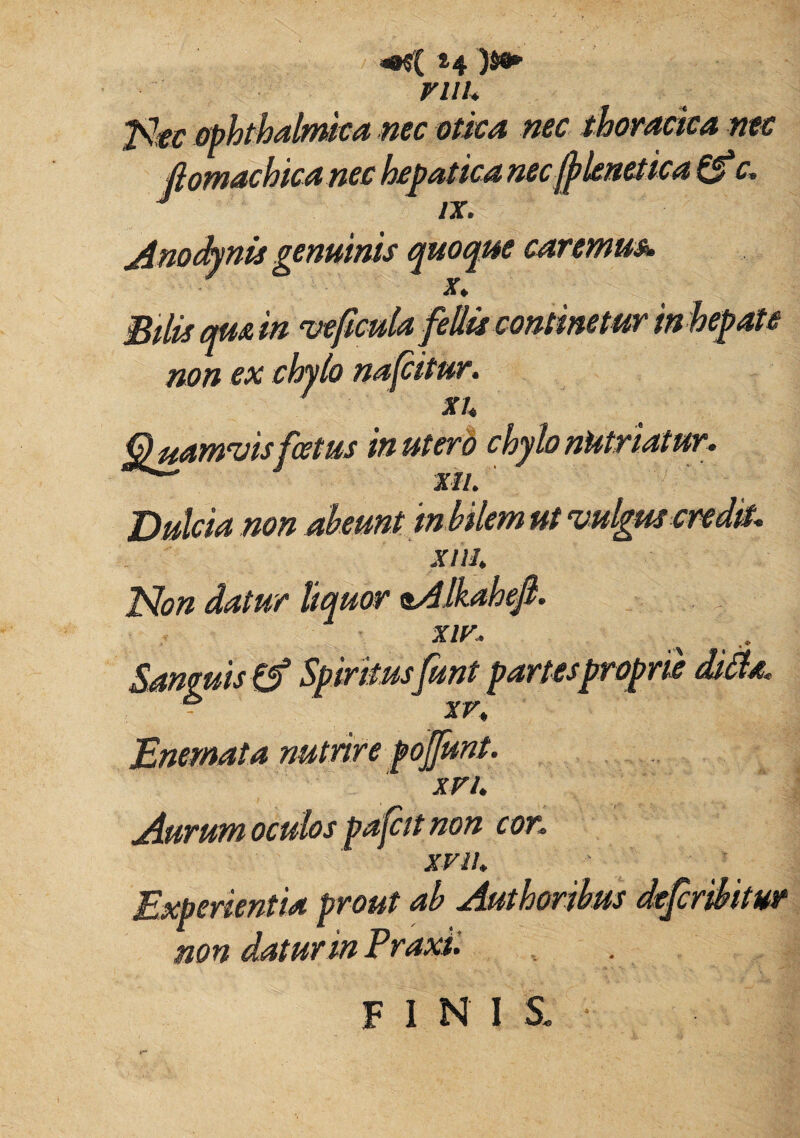 ( 24 )
VIII.
Nec ophthalmica nec otica nec thoracica nec
ſtomachica nec hepatica nec ſplenetica & c.
IX.
Anodynis genuinis quoque caremus.
X.
Bilis quæ in veſicula fellis continetur in hepate
non ex chylo naſcitur.
XI.
Quamvis fœtus in utero chylo nutriatur.
XII.
Dulcia non abeunt in bilem ut vulgus credit.
XIII.
Non datur liquor Alkaheſt.
XIV.
Sanguis & Spiritus ſunt partes proprie dictæ.
XV.
Enemata nutrire poſſunt.
XVI.
Aurum oculos paſcit non cor.
XVII.
Experientia prout ab Authoribus deſcribitur
non datur in Praxi.
FINIS.